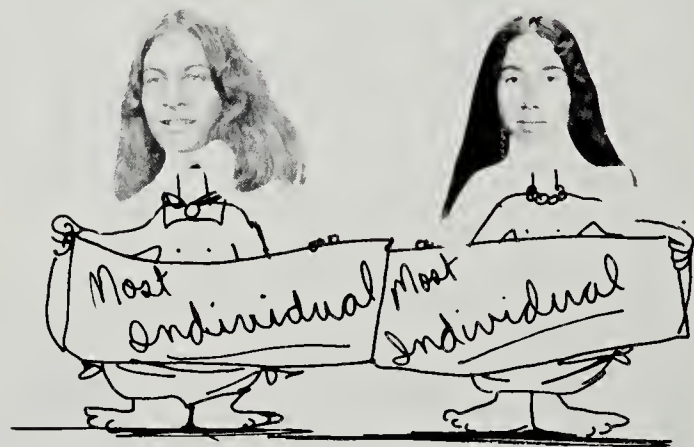 Most
Individual
Most
Individual